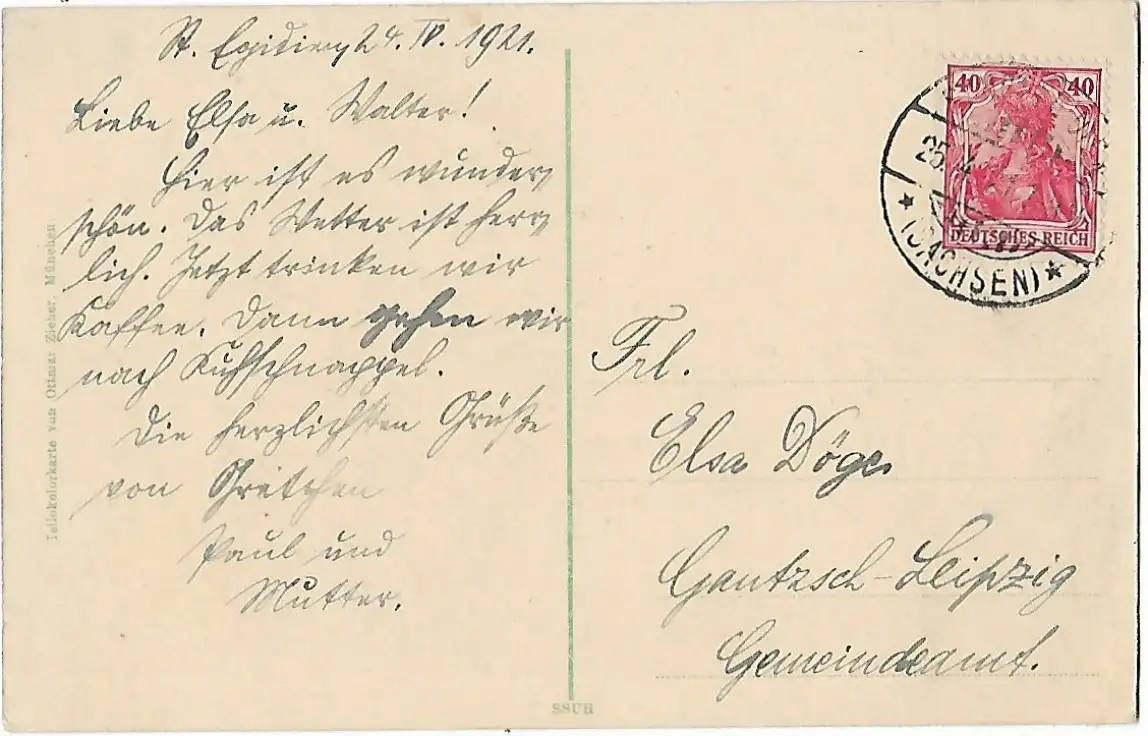 St. Egidien, 24. IV. 1921.
Liebe Elsa u. Walter!
Hier ist es wunder,
schön. Das Wetter ist herr,
lich. Jetzt trinken wir
Kaffee. Dann gehen wir
nach Kuhschnappel.
Die herzlichsten Grüße
von Gretchen
Paul und
Mutter.
Isllokolorkarte von Ottmar Zieher, München
SSUH
40 40
DEUTSCHES REICH
25. 4
(SACHSEN)
Frl.
Elsa Döge
Gautzsch-Leipzig
Gemeindeamt.